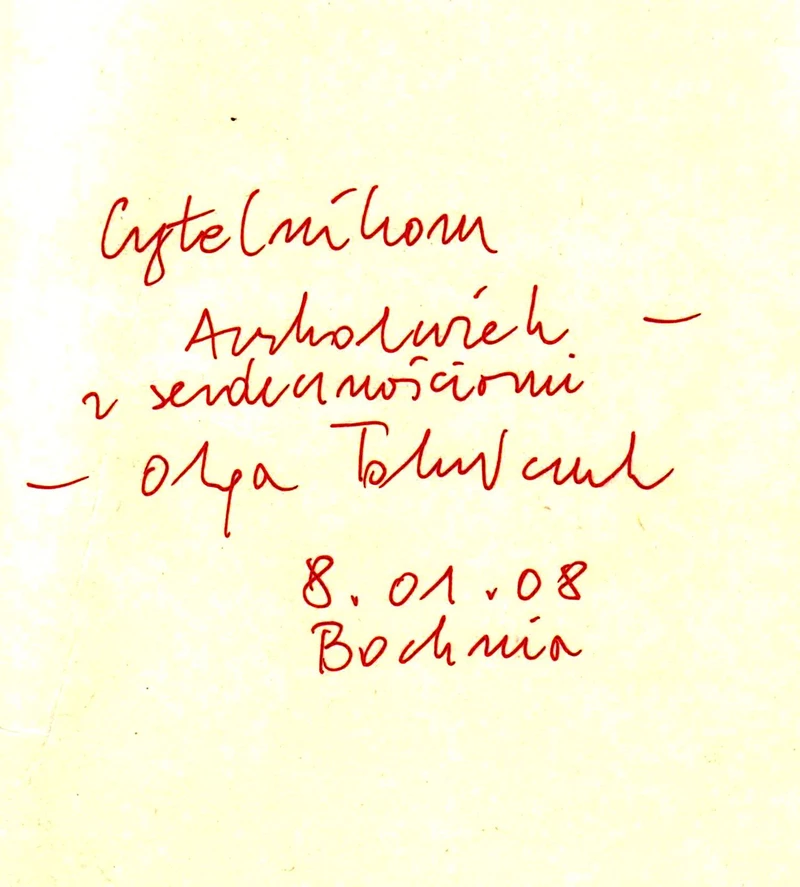 Czytelnikom
Aczkolwiek —
z serdecznościami
— Olga Tokarczuk
8.01.08
Bochnia